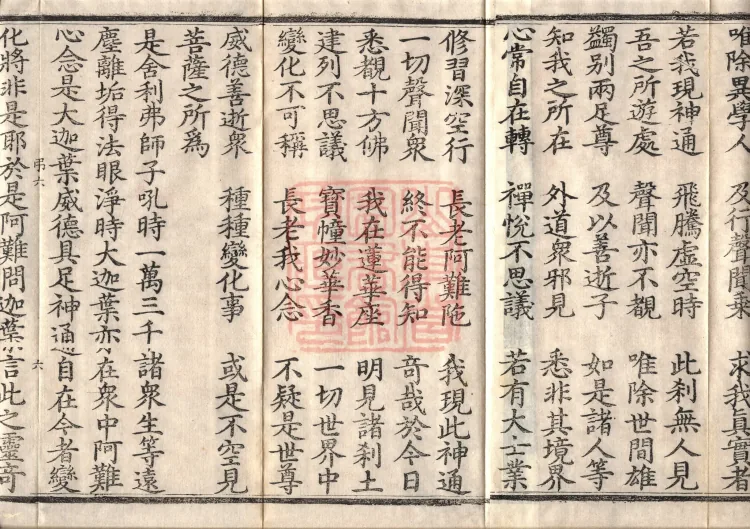 唯除異學人　及行聲聞乘　求我真實者
若我現神通　飛騰虛空時　此刹無人見
吾之所遊處　聲聞亦不覩　唯除世間雄
蠲別兩足尊　及以善逝子　如是諸人等
知我之所在　外道衆邪見　悉非其境界
心常自在轉　禪悅不思議　若有大士業
修習深空行　長老阿難陁　我現此神通
一切聲聞衆　終不能得知　奇哉於今日
悉觀十方佛　我在蓮華座　明見諸刹土
建列不思議　寶幢妙華香　一切世界中
變化不可稱　長老我心念　不疑是世尊
威德善逝衆　種種變化事　或是不空見
菩薩之所為
是舍利弗師子吼時一萬三千諸衆生等遠
塵離垢得法眼淨時大迦葉亦在衆中阿難
心念是大迦葉威德具足神通自在今者變
弔六　六
化將非是耶於是阿難問迦葉言此之靈奇